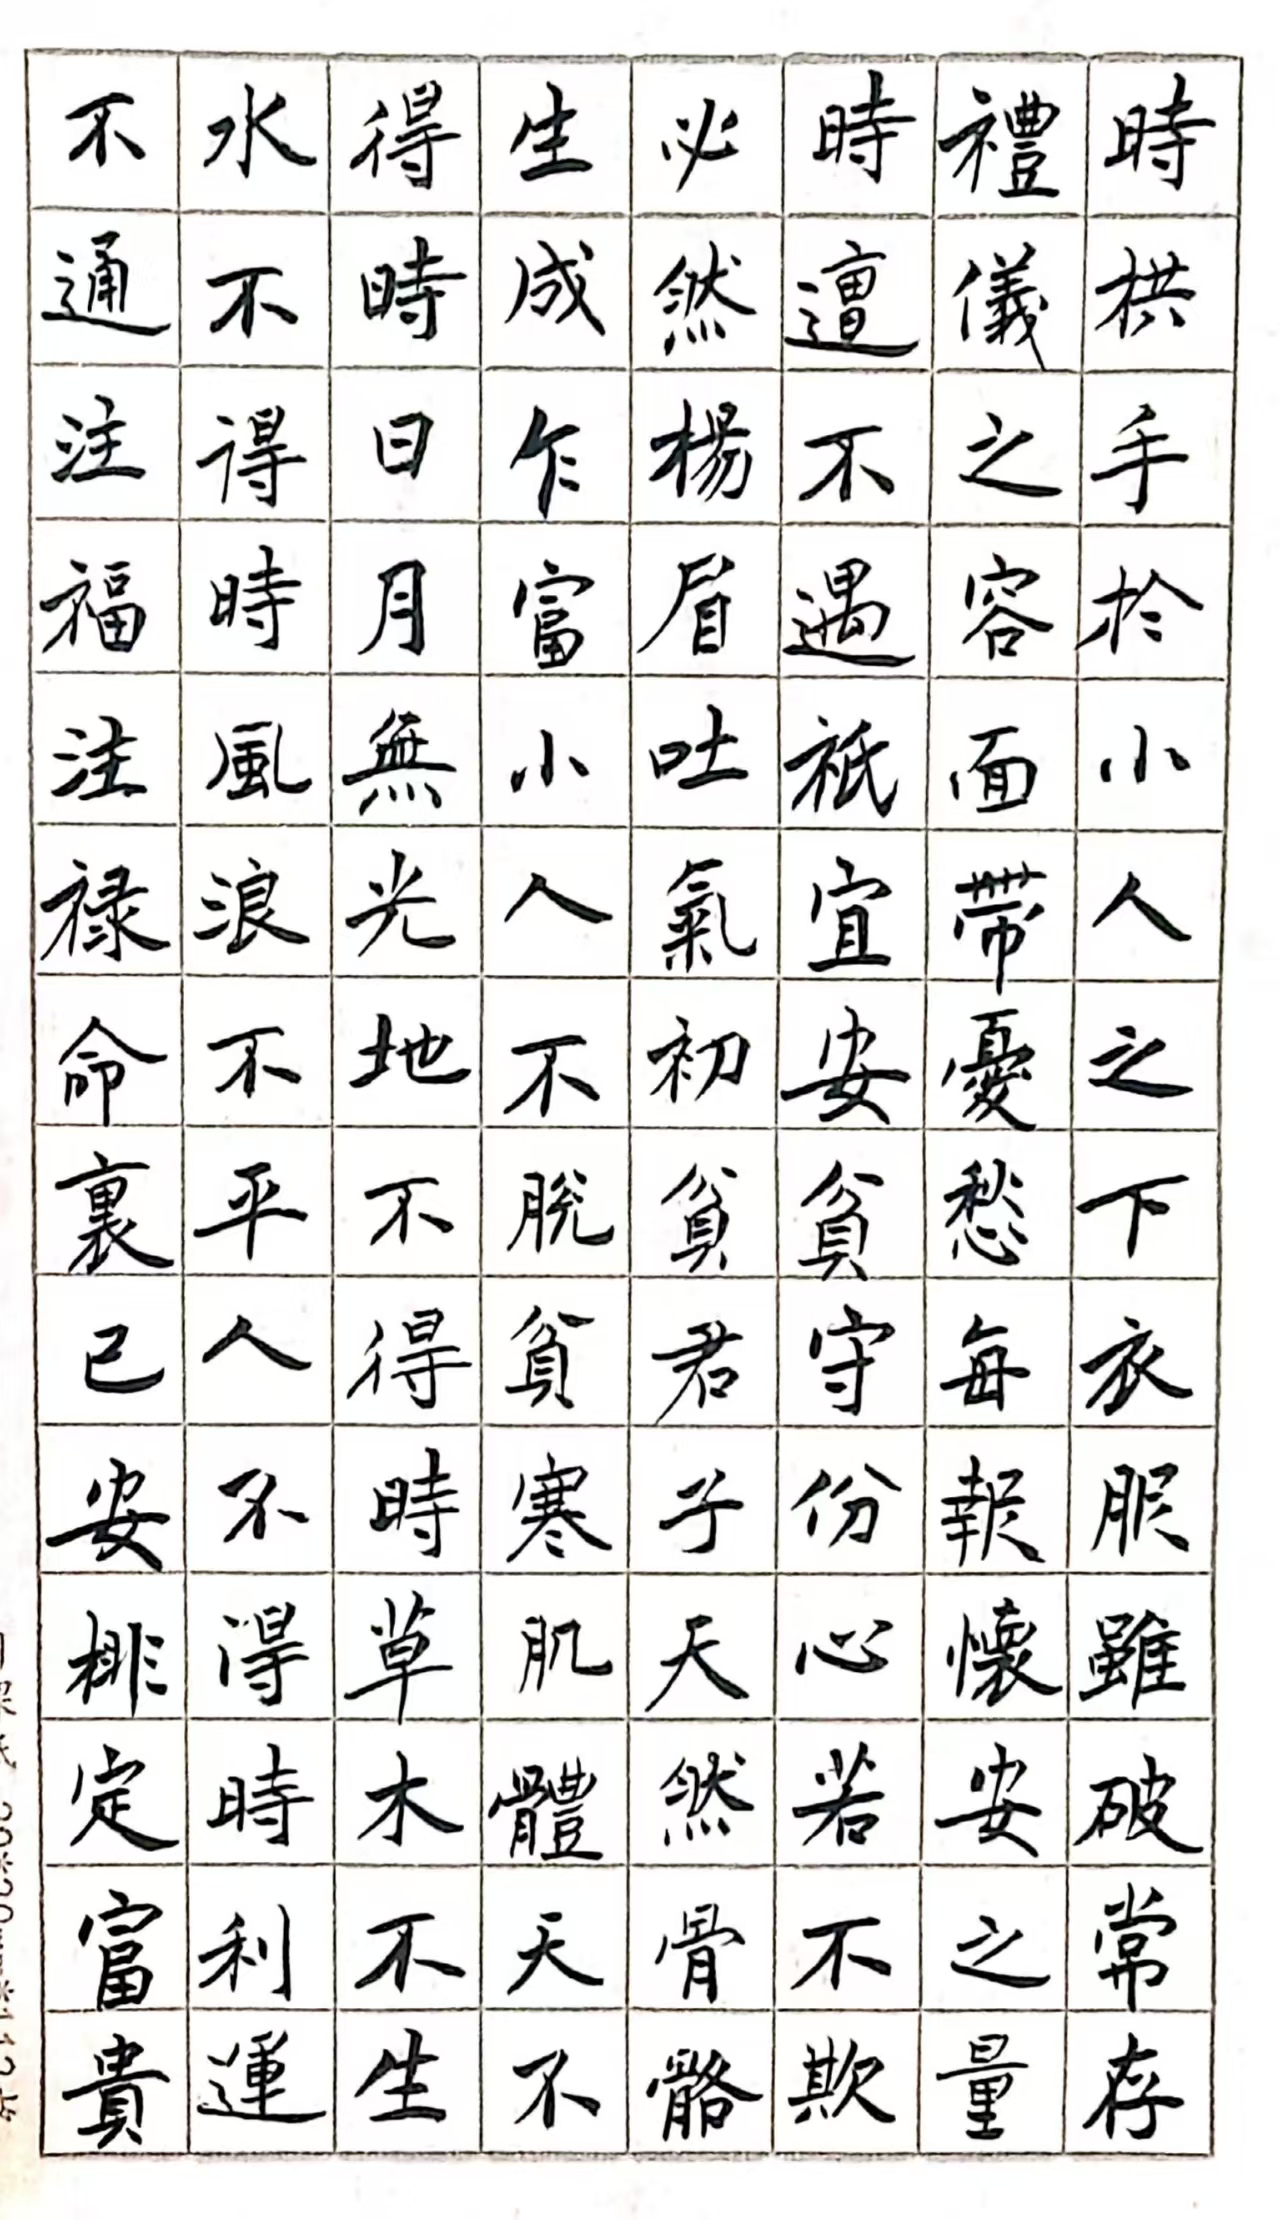 時栱手於小人之下衣服雖破常存
禮儀之容面帶憂愁每報懷安之量
時遭不遇祇宜安貧守份心若不欺
必然楊眉吐氣初貧君子天然骨骼
生成乍富小人不脫貧寒肌體天不
得時日月無光地不得時草木不生
水不得時風浪不平人不得時利運
不通注福注祿命裏已安排定富貴